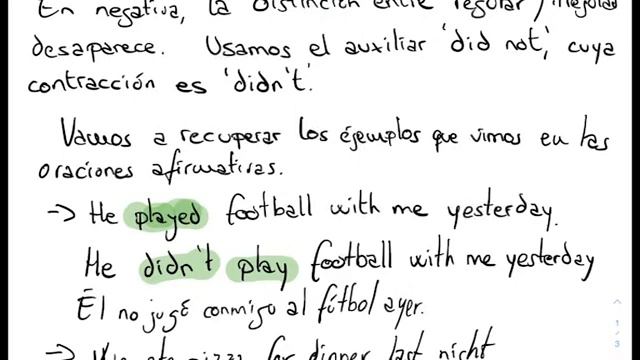 En negativa, la distinción entre regular/irregular
desaparece. Usamos el auxiliar 'did not', cuya
contracción es 'didn't'.
Vamos a recuperar los ejemplos que vimos en las
oraciones afirmativas.
-> He played football with me yesterday.
He didn't play football with me yesterday
Él no jugó conmigo al fútbol ayer.
-> We ate pizza for dinner last night
1
/
3